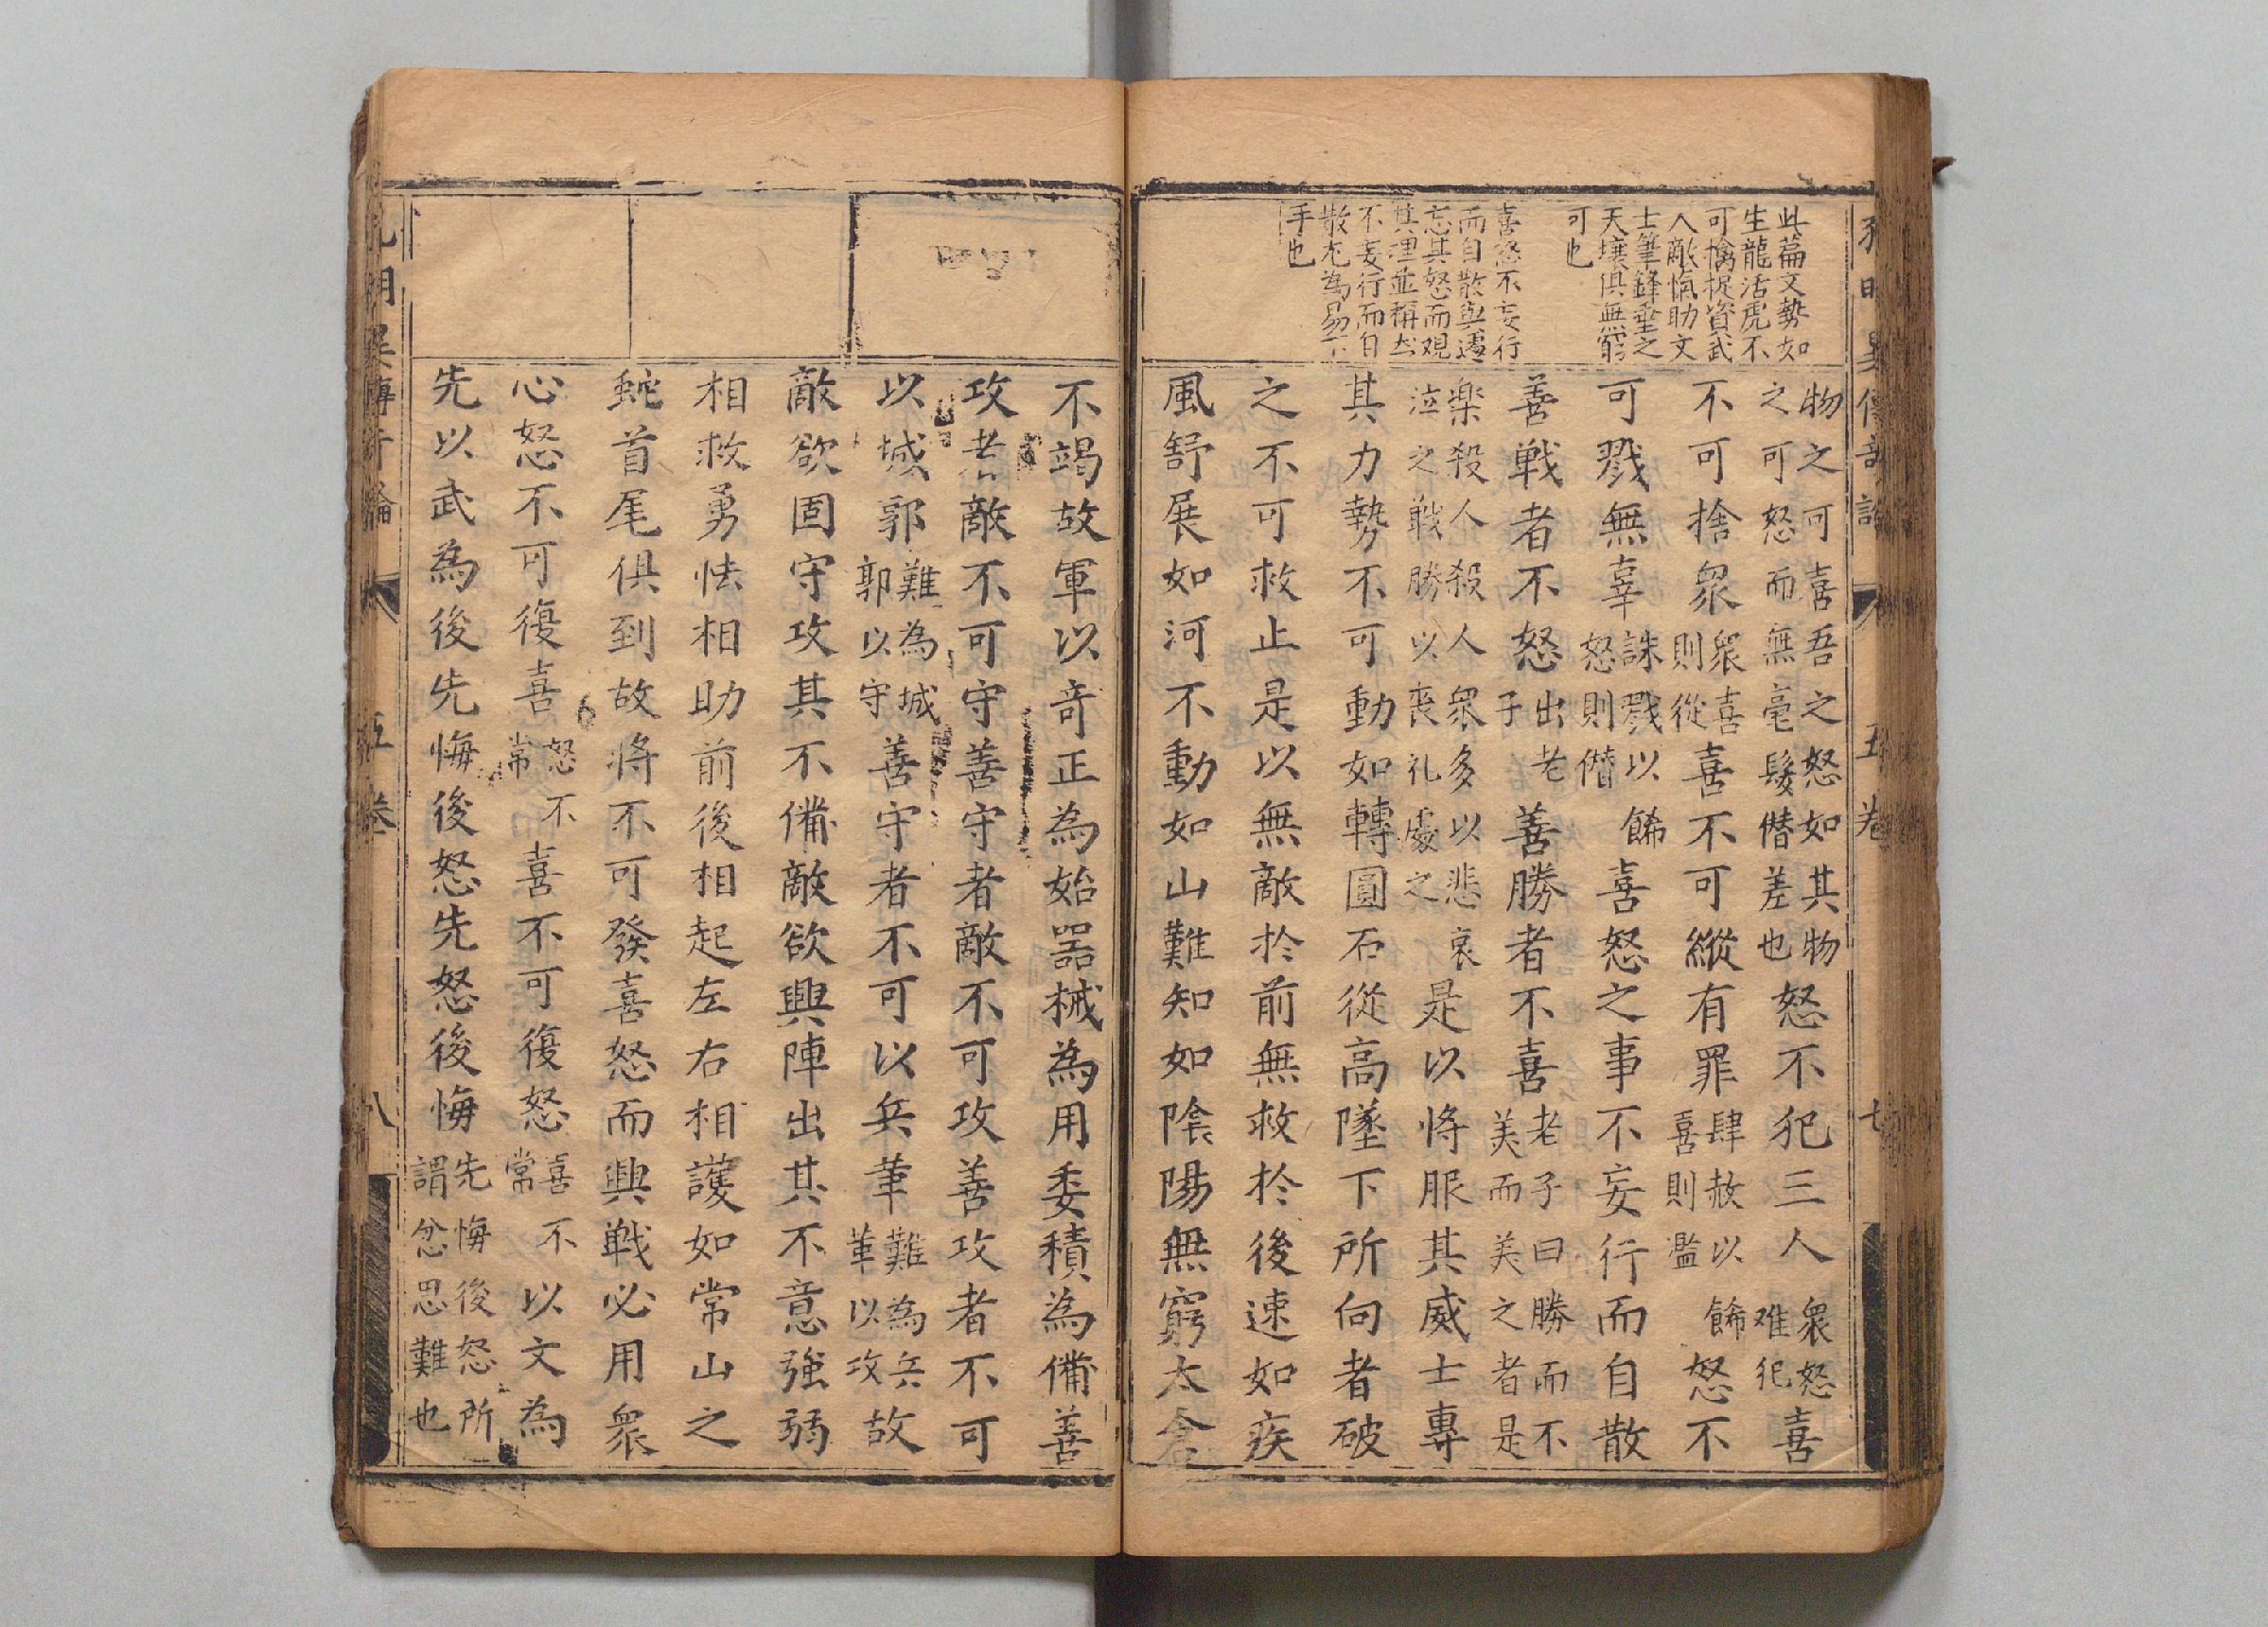 此篇文勢如
生龍活虎不
可擒捉資武
人敵愾助文
士筆鋒垂之
天壤俱無窮
可也
喜怒不妄行
而自散與遽
忘其怒而觀
其理並稱然
不妄行而自
散尤為易下
手也
物之可喜吾之怒如其物
之可怒而無毫髮僭差也
怒不犯三人
衆怒
难犯
喜
不可捨衆
衆喜
則從
喜不可縱有罪
肆赦以餙
喜則濫
怒不
可戮無辜
誅戮以餙
怒則僭
喜怒之事不妄行而自散
善戦者不怒
出老
子
善勝者不喜
老子曰勝而不
美而美之者是
楽殺人殺人衆多以悲哀
泣之戦勝以喪礼處之
是以将服其威士專
其力勢不可動如轉圓石從高墜下所向者破
之不可救止是以無敵於前無救於後速如疾
風舒展如河不動如山難知如陰陽無窮太倉
五卷
七
不竭故軍以奇正為始器械為用委積為備善
攻者敵不可守善守者敵不可攻善攻者不可
以城郭
難為城
郭以守
善守者不可以兵革
難為兵
革以攻
故
敵欲固守攻其不備敵欲興陣出其不意強弱
相救勇怯相助前後相起左右相護如常山之
蛇首尾俱到故将不可發喜怒而興戦必用衆
心怒不可復喜
怒不
常
喜不可復怒
喜不
常
以文為
先以武為後先悔後怒先怒後悔
先悔後怒所
謂忿思難也
五卷
八